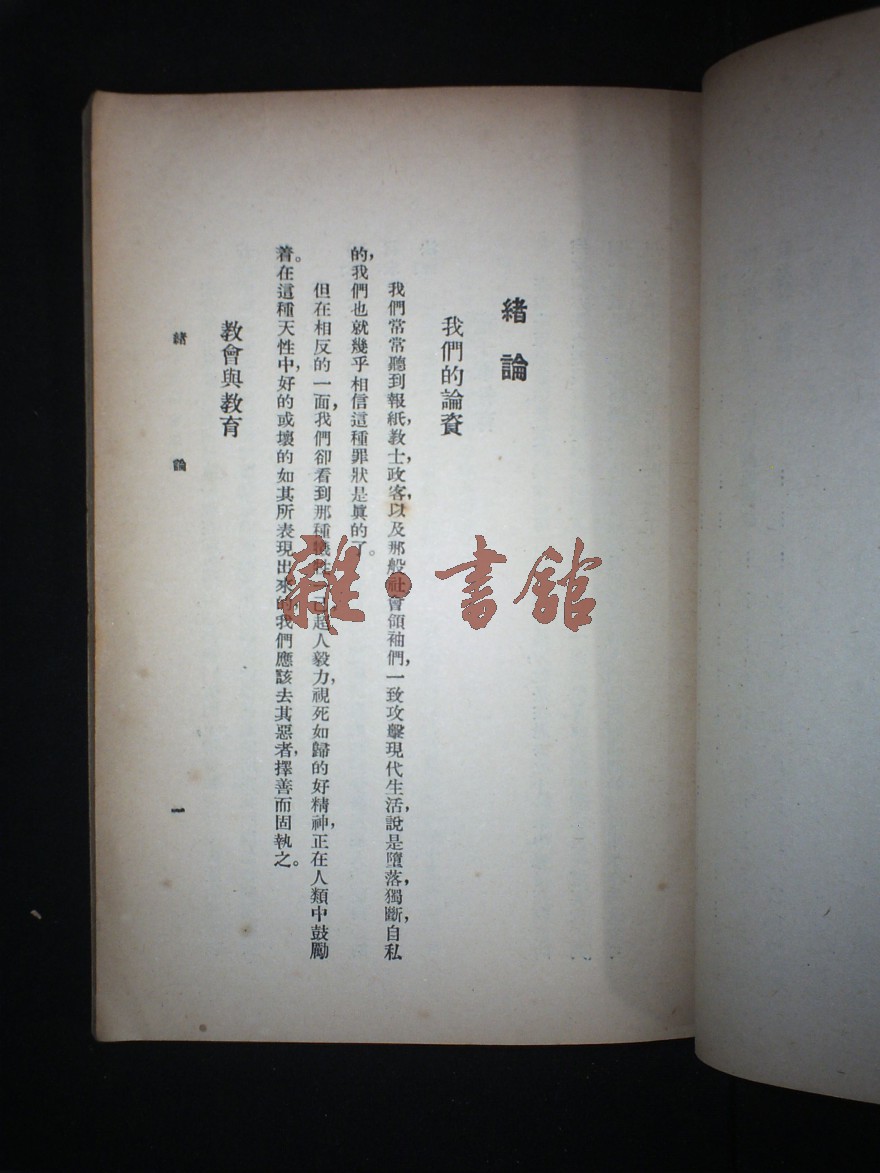 緒論
我們的論資
我們常常聽到報紙,教士,政客,以及那般社會領袖們,一致攻擊現代生活,說是墮落,獨斷,自私
的,我們也就幾乎相信這種罪狀是眞的了。
但在相反的一面,我們卻看到那種犧牲一己,超人毅力,視死如歸的好精神,正在人類中鼓勵
着。在這種天性中,好的或壞的如其所表現出來的,我們應該去其惡者,擇善而固執之。
教會與教育
緒論 一
雜·書館